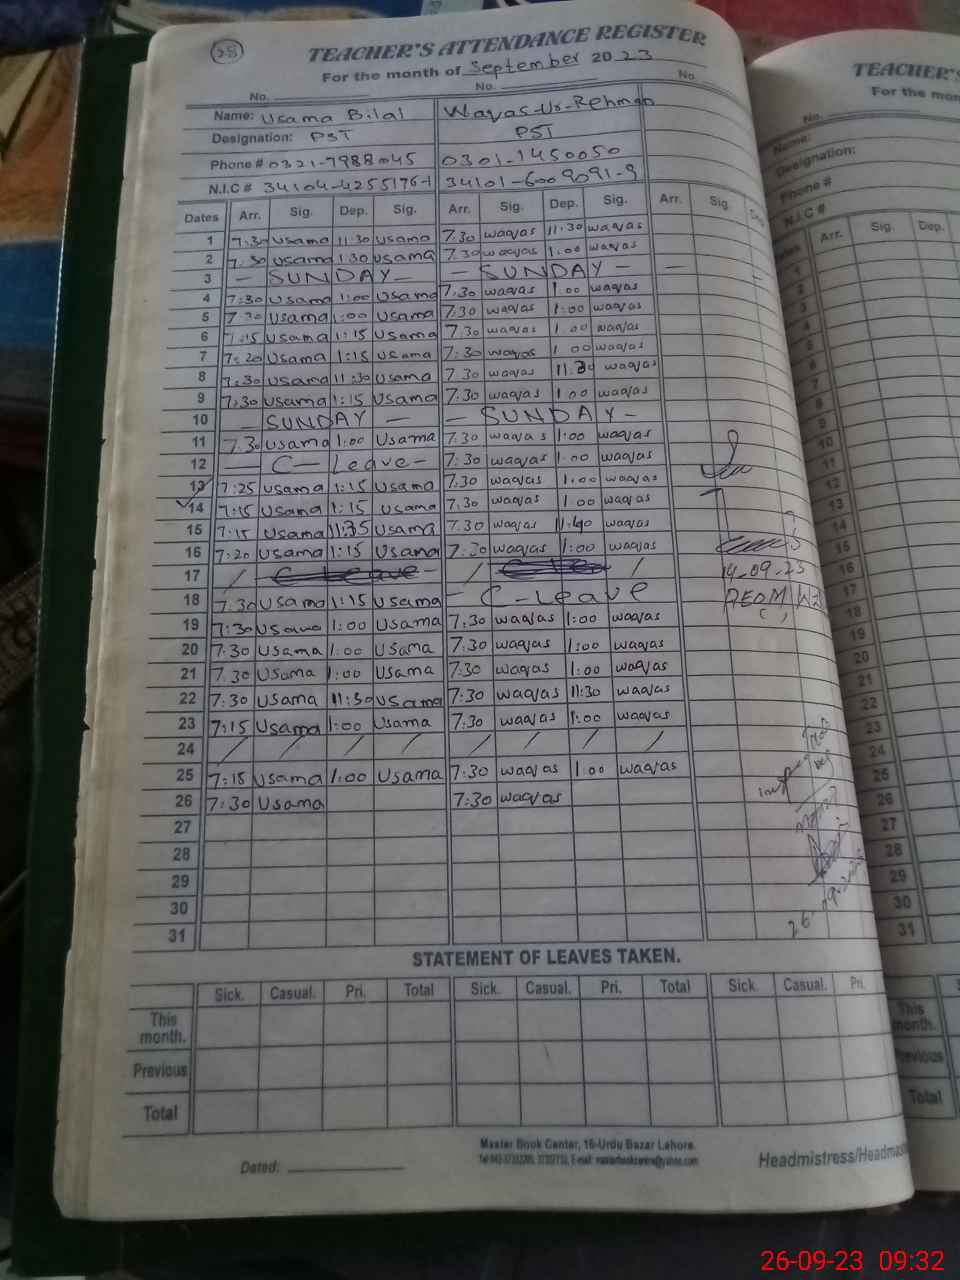 28
TEACHER'S ATTENDANCE REGISTER
For the month of September 2023
No. No. No.
Name: Usama Bilal Waqas-Ur-Rehman
Designation: PST PST
Phone # 0321-7988045 0301-1450050
N.I.C # 34104-4255176-1 34101-6009091-9
Dates Arr. Sig. Dep. Sig. Arr. Sig. Dep. Sig. Arr. Sig.
1 7:30 Usama 11:30 Usama 7.30 waqas 11:30 waqas
2 7:30 Usama 1:30 Usama 7.30 waqas 1:00 waqas
3 - SUNDAY - - SUNDAY -
4 7:30 Usama 1:00 Usama 7.30 waqas 1:00 waqas
5 7:30 Usama 1:00 Usama 7:30 waqas 1:00 waqas
6 7:15 Usama 1:15 Usama 7.30 waqas 1:00 waqas
7 7:20 Usama 1:15 Usama 7:30 waqas 1:00 waqas
8 7:30 Usama 11:30 Usama 7.30 waqas 11:30 waqas
9 7:30 Usama 1:15 Usama 7:30 waqas 1:00 waqas
10 - SUNDAY - - SUNDAY -
11 7:30 Usama 1:00 Usama 7:30 waqas 1:00 waqas
12 - C-Leave - 7:30 waqas 1:00 waqas
13 7:25 Usama 1:15 Usama 7.30 waqas 1:00 waqas
14 7:15 Usama 1:15 Usama 7.30 waqas 1:00 waqas
15 7:15 Usama 11:35 Usama 7.30 waqas 11:40 waqas
16 7:20 Usama 1:15 Usama 7:30 waqas 1:00 waqas
17 / C Leave - / /
14-09-23
18 7:30 Usama 1:15 Usama - C-Leave
19 7:30 Usama 1:00 Usama 7:30 waqas 1:00 waqas
20 7:30 Usama 1:00 Usama 7:30 waqas 1:00 waqas
21 7.30 Usama 1:00 Usama 7:30 waqas 1:00 waqas
22 7:30 Usama 11:30 Usama 7:30 waqas 11:30 waqas
23 7:15 Usama 1:00 Usama 7:30 waqas 1:00 waqas
24 / / / / / / / /
25 7:15 Usama 1:00 Usama 7:30 waqas 1:00 waqas
26 7:30 Usama 7:30 waqas
27
28
29
30
31
STATEMENT OF LEAVES TAKEN.
Sick. Casual. Pri. Total Sick. Casual. Pri. Total Sick. Casual. Pri.
This month.
Previous
Total
Master Book Center, 16-Urdu Bazar Lahore.
Dated:
Headmistress/Headmas
TEACHER'S
For the mon
No.
Name:
Designation:
Phone #
N.I.C #
Arr. Sig. Dep.
1
2
3
4
5
6
7
8
9
10
11
12
13
14
15
16
17
18
19
20
21
22
23
24
25
26
27
28
29
30
31
This month.
Previous
Total
26-09-23 09:32